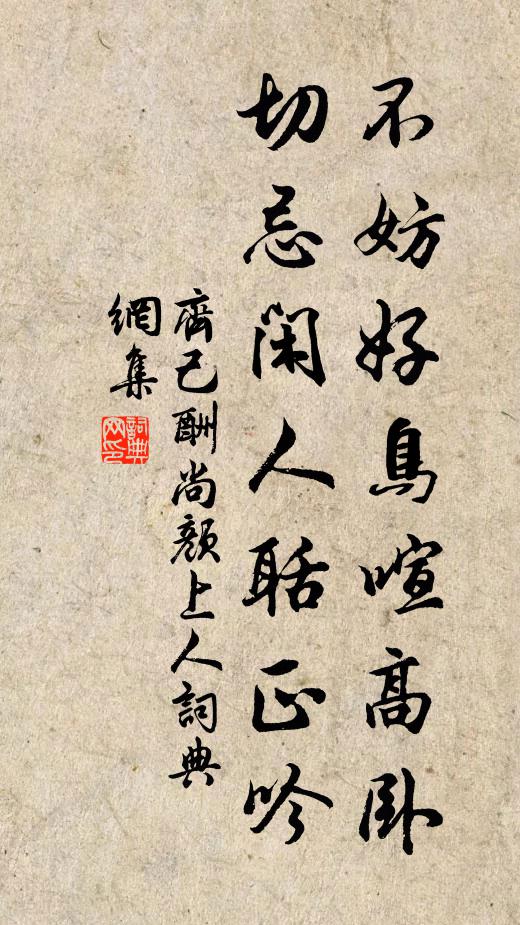 不妨好鳥喧高卧
切忌閑人聒正吟
齊己酬尚顏上人詞典
網集
詞典
网印